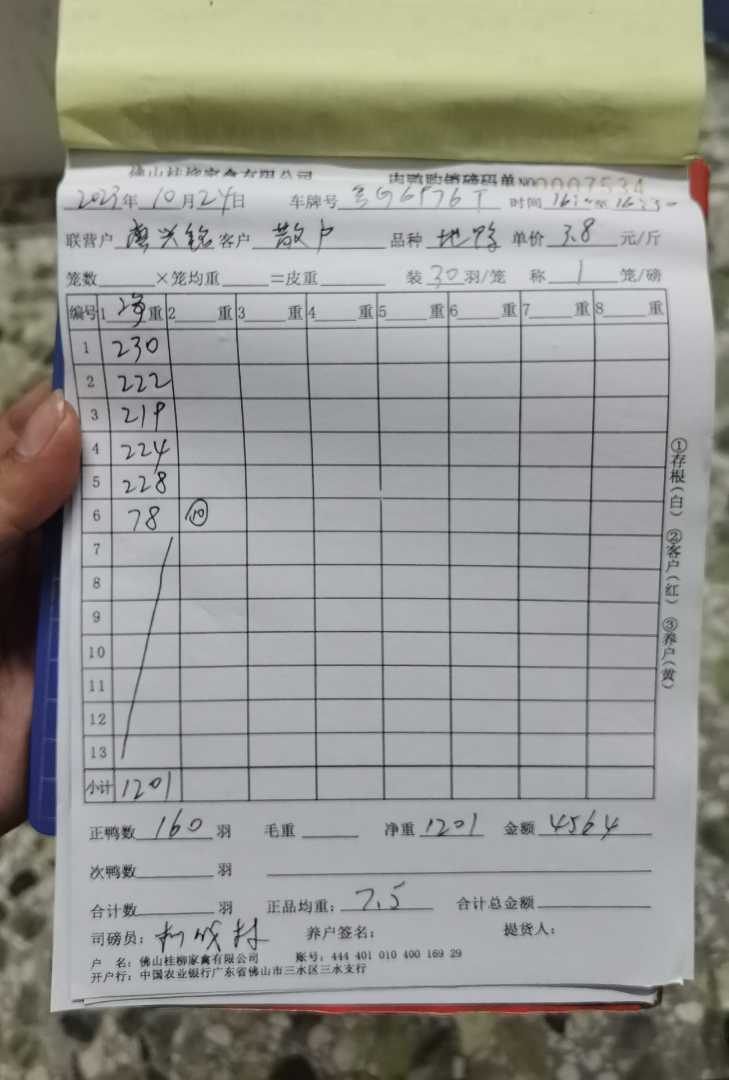 佛山桂柳家禽有限公司 肉鸭购销磅码单 NO 0007534
2023年 10月24日 车牌号 时间 至
联营户 客户 散户 品种 地鸭 单价 3.8 元/斤
笼数 ×笼均重 =皮重 装 30 羽/笼 称 1 笼/磅
编号 1 净重 2 重 3 重 4 重 5 重 6 重 7 重 8 重
1 230
2 222
3 219
4 224
5 228
6 78 10
7
8
9
10
11
12
13
小计 1201
正鸭数 160 羽 毛重 净重 1201 金额 4564
次鸭数 羽
合计数 羽 正品均重: 7.5 合计总金额
司磅员: 养户签名: 提货人:
户 名: 佛山桂柳家禽有限公司 账号: 444 401 010 400 169 29
开户行: 中国农业银行广东省佛山市三水区三水支行
①存根(白) ②客户(红) ③养户(黄)